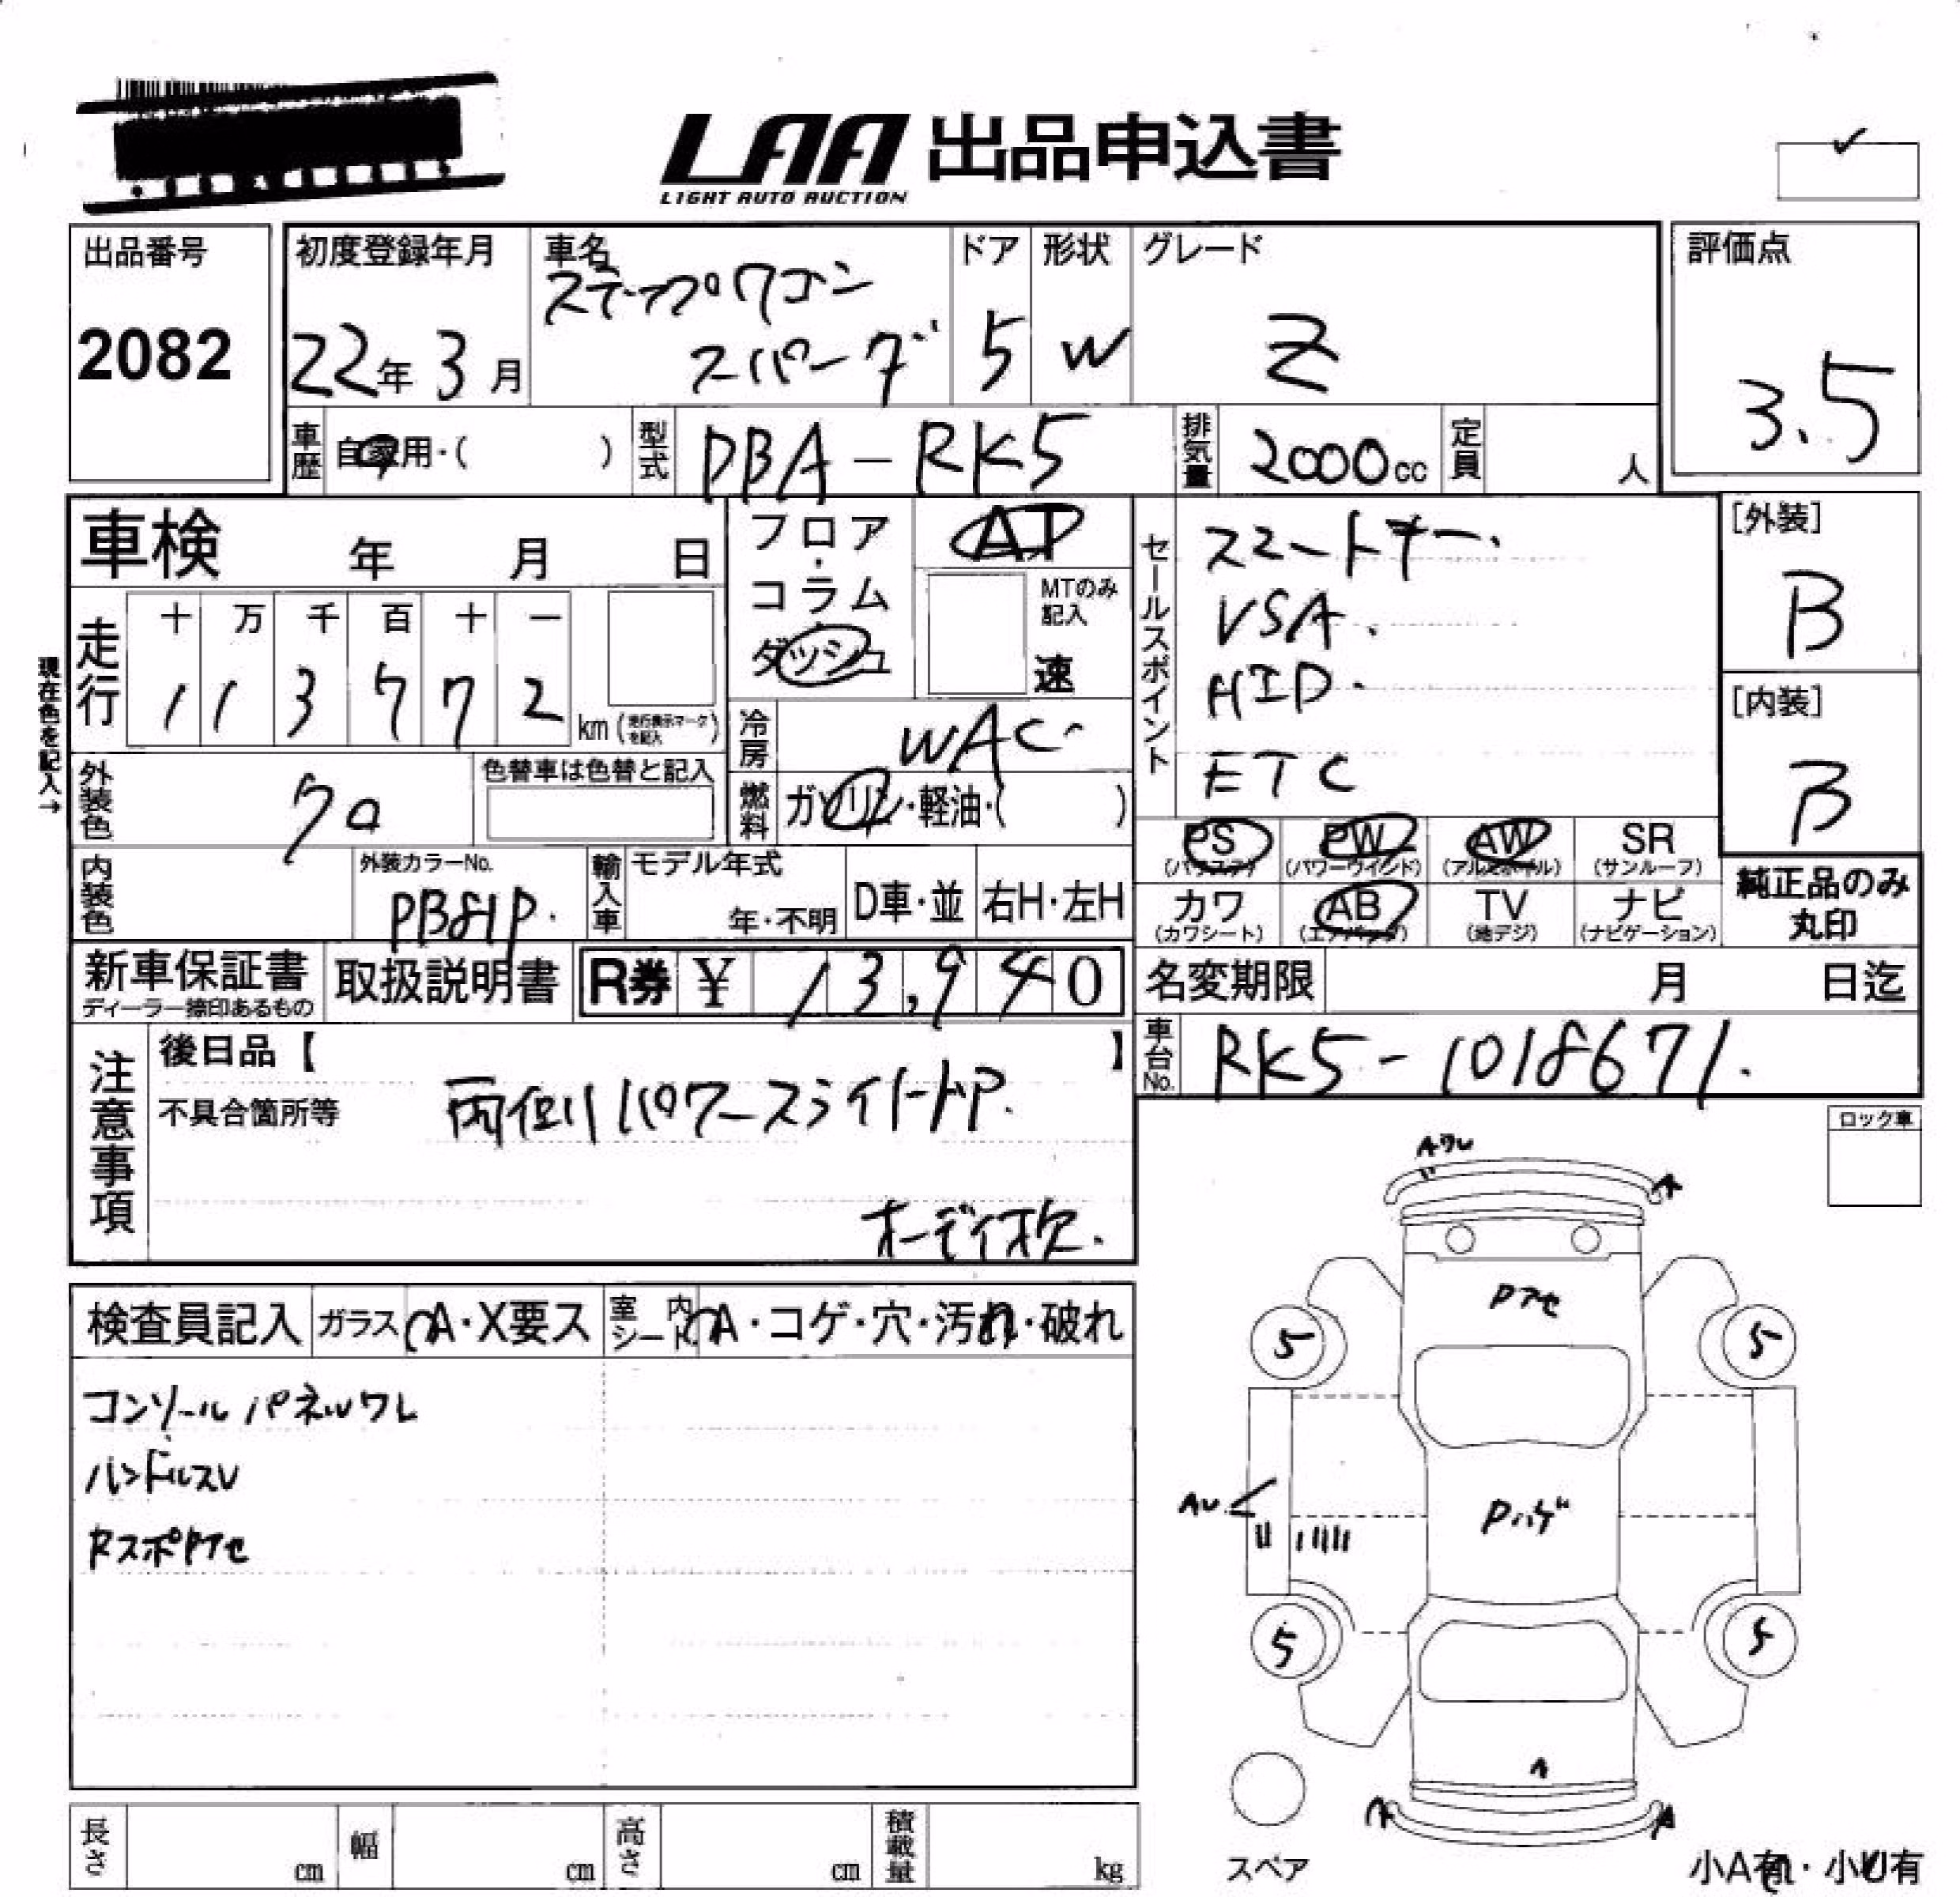 LAA 出品申込書
LIGHT AUTO AUCTION
出品番号
2082
初度登録年月
22年 3月
車名
ステップワゴン
スパーダ
ドア
5
形状
W
グレード
Z
評価点
3.5
車歴
自家用・( )
型式
DBA-RK5
排気量
2000cc
定員
人
車検 年 月 日
走行
十 万 千 百 十 一
1 1 3 7 7 2
km (走行表示マークを記入)
現在色を記入→
フロア・コラム
ダッシュ
AT
MTのみ記入
速
冷房
WAC
燃料
ガソリン・軽油・( )
セールスポイント
スマートキー.
VSA.
HID.
ETC
[外装]
B
[内装]
B
外装色
クロ
色替車は色替と記入
内装色
外装カラーNo.
PB81P.
輸入車
モデル年式
年・不明
D車・並
右H・左H
PS
(パワステ)
PW
(パワーウィンド)
AW
(アルミホイル)
SR
(サンルーフ)
カワ
(カワシート)
AB
(エアバッグ)
TV
(地デジ)
ナビ
(ナビゲーション)
純正品のみ
丸印
新車保証書
ディーラー捺印あるもの
取扱説明書
R券 ¥ 13,940
名変期限 月 日迄
車台No.
RK5-1018671.
注意事項
後日品【 】
不具合箇所等
両側パワースライドD.
オーディオ欠.
ロック車
検査員記入
ガラス
A・X要ス
室内
シート
A・コゲ・穴・汚れ・破れ
コンソールパネルワレ
ハンドルスレ
Rスポアセ
Aワレ
A
Pアセ
5
5
AU
Pハゲ
5
5
A
A
A
スペア
小A有・小U有
長さ cm
幅 cm
高さ cm
積載量 kg